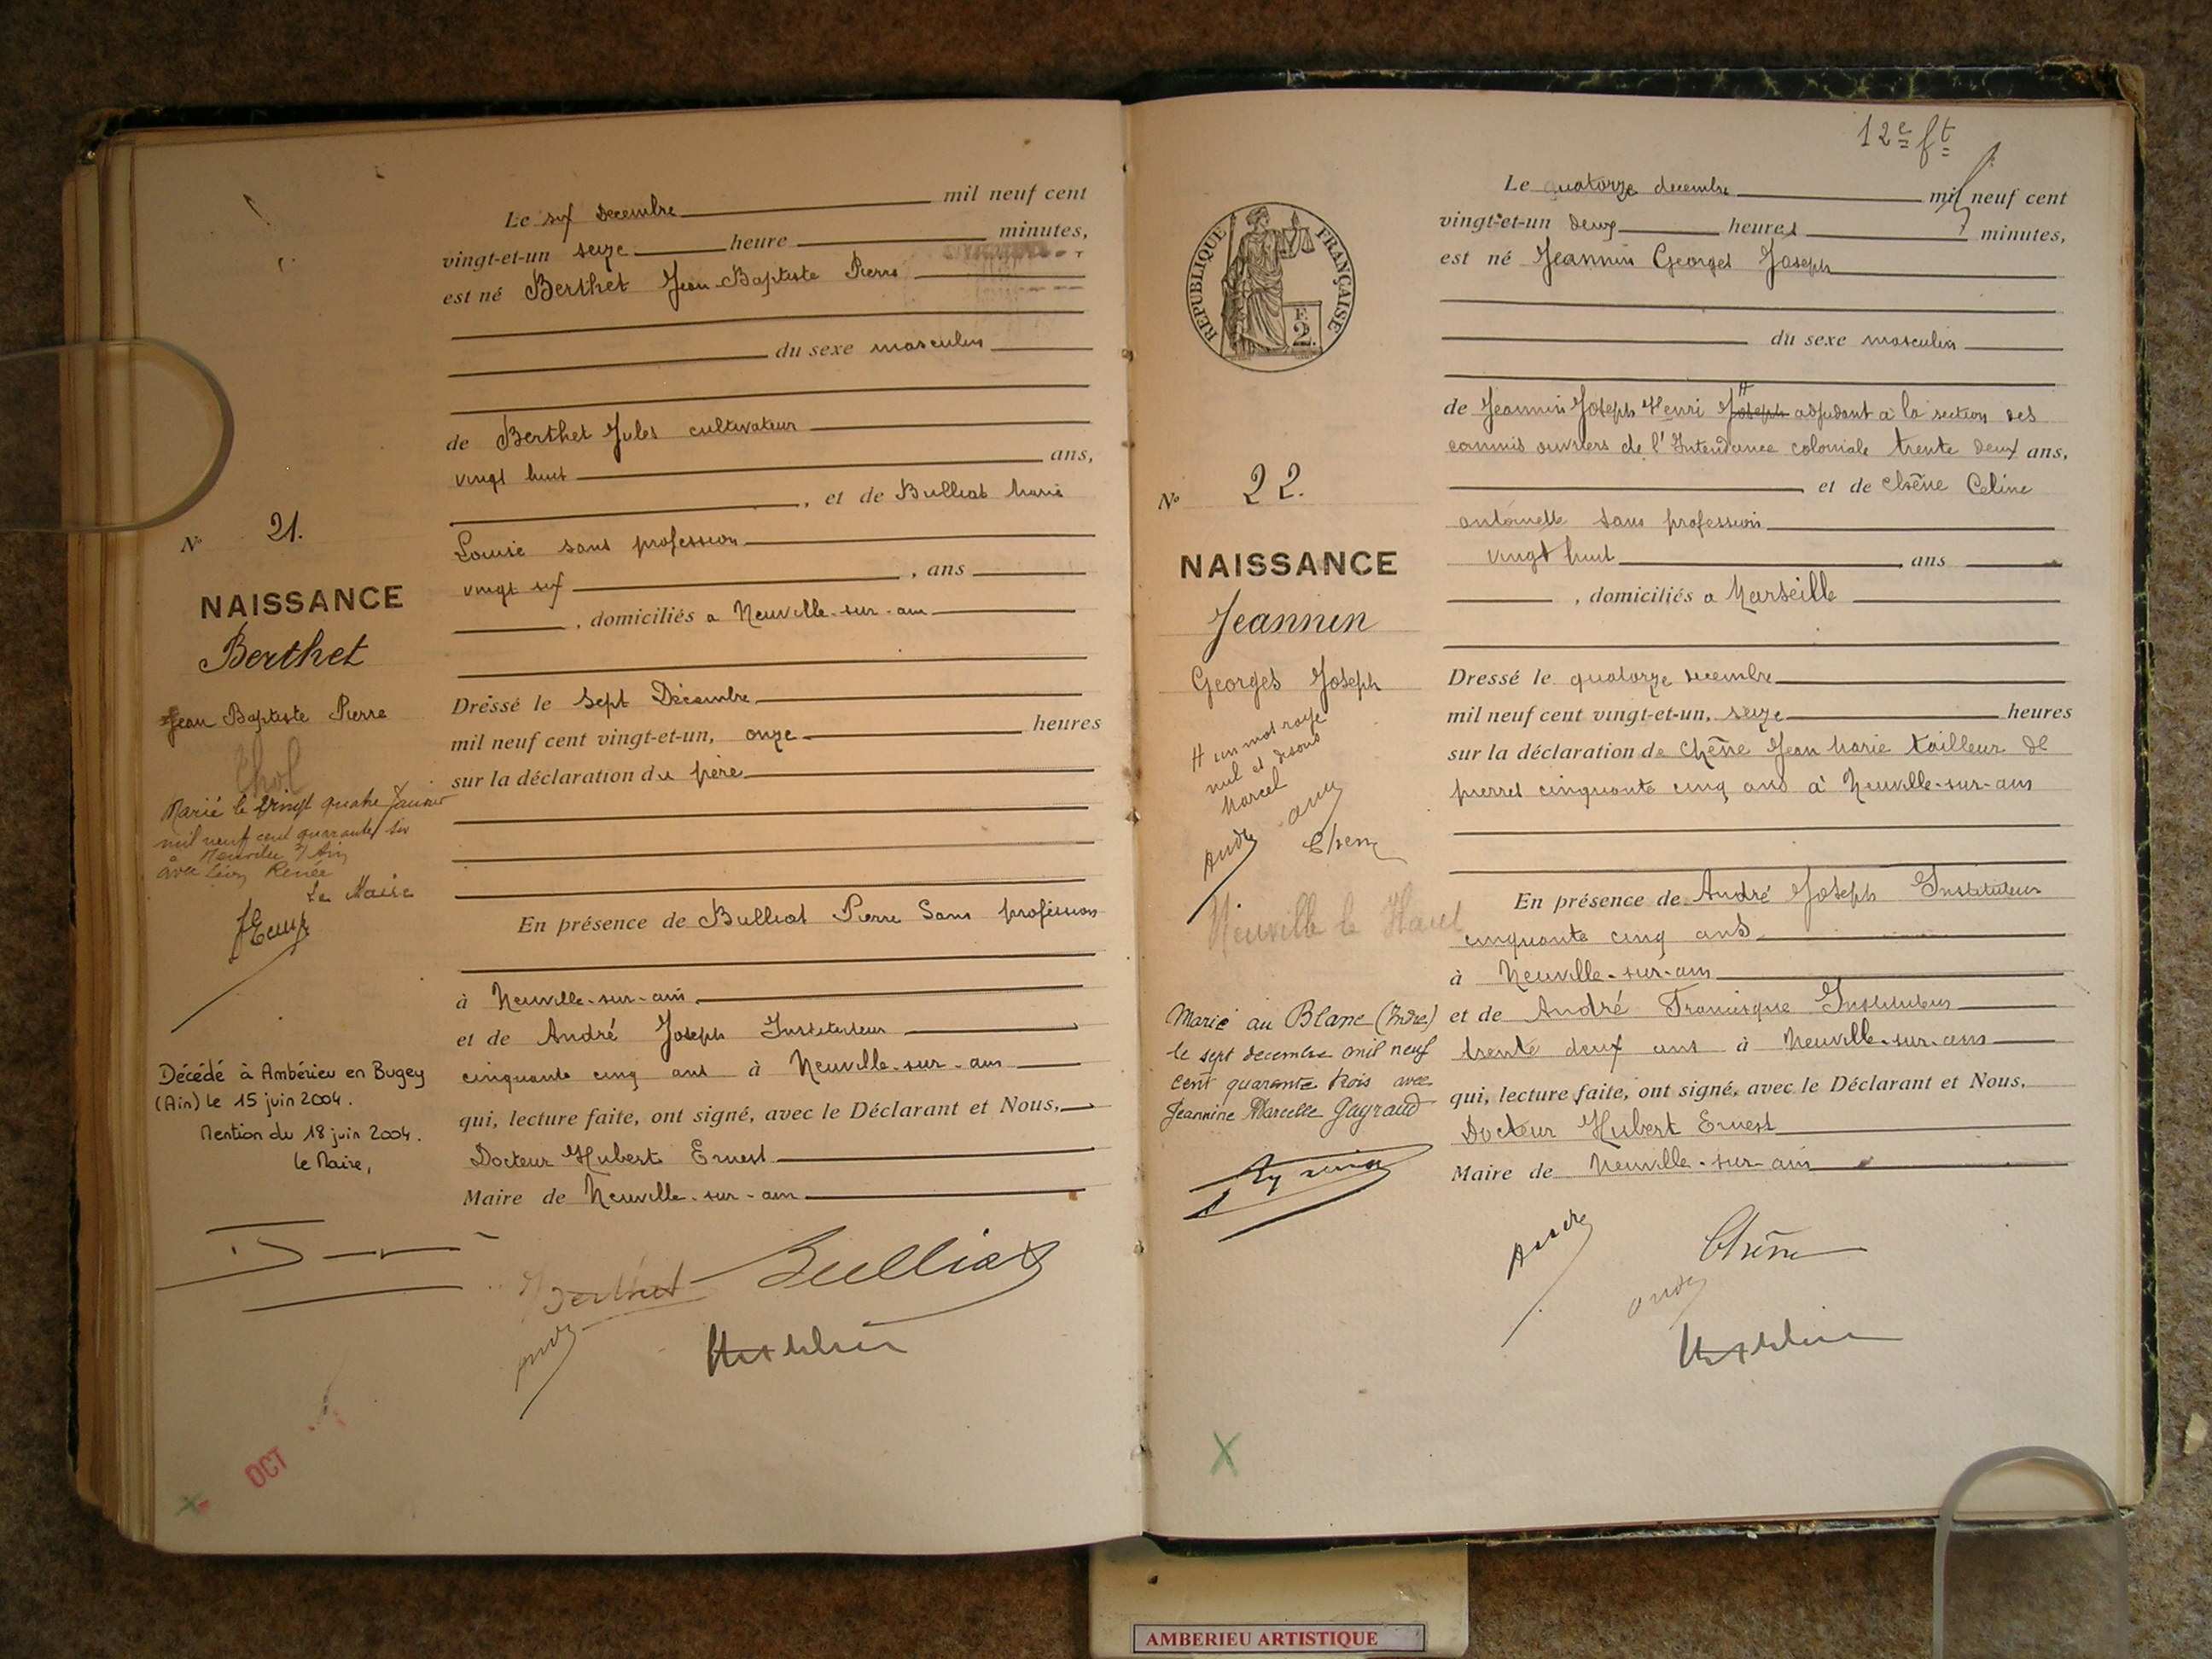 Le six Decembre mil neuf cent
vingt-et-un seize heure minutes,
est né Berthet Jean-Baptiste Pierre
du sexe masculin
de Berthet Jules cultivateur
vingt huit ans,
, et de Bulliat Marie
Louise sans profession
vingt six , ans
, domiciliés a Neuville-sur-ain
Dressé le sept Décembre
mil neuf cent vingt-et-un, onze heures
sur la déclaration du père
En présence de Bulliat Pierre Sans profession
à Neuville-sur-ain
et de André Joseph Instituteur
cinquante cinq ans à Neuville-sur-ain
qui, lecture faite, ont signé, avec le Déclarant et Nous,
Docteur Hubert Ernest
Maire de Neuville-sur-ain
Berthet Bulliat
No 21.
NAISSANCE
Berthet
Jean Baptiste Pierre
Thol
Marié le vingt quatre Janvier
mil neuf cent quarante six
à Neuville s/ Ain
avec Renée
Le Maire
Décédé à Ambérieu en Bugey
(Ain) le 15 juin 2004.
Mention du 18 juin 2004.
le Maire,
OCT
12e ft
Le quatorze decembre mil neuf cent
vingt-et-un deux heures minutes,
est né Jeannin Georges Joseph
du sexe masculin
de Jeannin Joseph Henri Joseph H adjudant à la section des
commis ouvriers de l'Intendance coloniale trente deux ans,
et de Chêne Celine
antoinette sans profession
vingt huit ans
, domiciliés a Marseille
Dressé le quatorze decembre
mil neuf cent vingt-et-un, seize heures
sur la déclaration de Chêne Jean Marie tailleur de
pierres cinquante cinq ans à Neuville-sur-ain
En présence de André Joseph Instituteur
cinquante cinq ans
à Neuville-sur-ain
et de André Francisque Instituteur
trente deux ans à Neuville-sur-ain
qui, lecture faite, ont signé, avec le Déclarant et Nous,
Docteur Hubert Ernest
Maire de Neuville-sur-ain
André Chêne
André
RÉPUBLIQUE FRANÇAISE
F.
2.
No 22.
NAISSANCE
Jeannin
Georges Joseph
H un mot rayé
nul et disons
Marcel
André Chêne
Neuville le Haut
Marié au Blanc (Indre)
le sept decembre mil neuf
cent quarante trois avec
Jeannine Marcelle Gayraud
AMBERIEU ARTISTIQUE